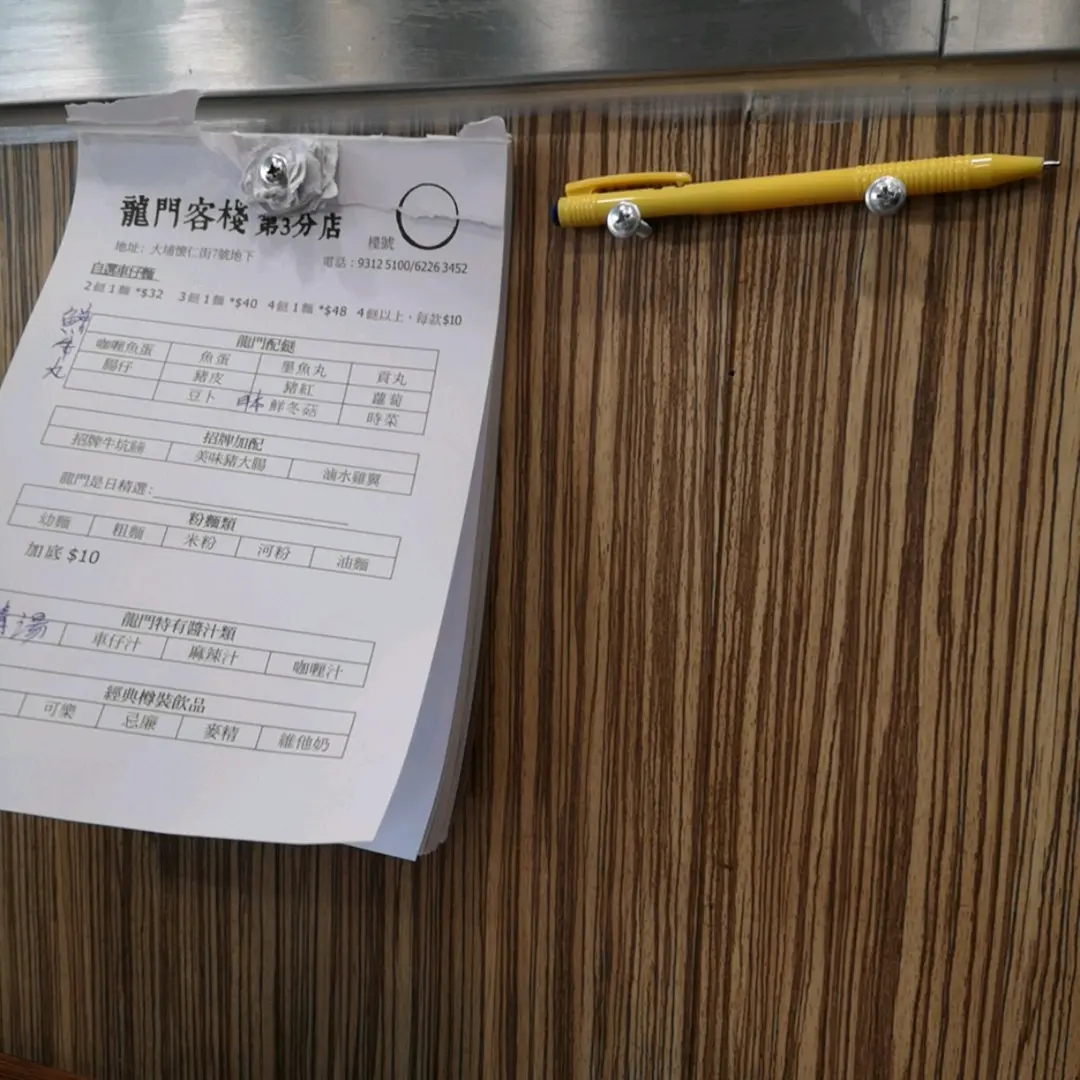 龍門客棧 第3分店
檯號
地址: 大埔懷仁街7號地下
電話:9312 5100/6226 3452
自選車仔麵
2餸1麵 *$32 3餸1麵 *$40 4餸1麵 *$48 4餸以上,每款$10
鮮牛丸
龍門配餸
咖喱魚蛋 魚蛋 墨魚丸 貢丸
腸仔 豬皮 豬紅 蘿蔔
豆卜 日本 鮮冬菇 時菜
招牌加配
招牌牛坑腩 美味豬大腸 滷水雞翼
龍門是日精選:
粉麵類
幼麵 粗麵 米粉 河粉 油麵
加底 $10
龍門特有醬汁類
清湯 車仔汁 麻辣汁 咖喱汁
經典樽裝飲品
可樂 忌廉 麥精 維他奶